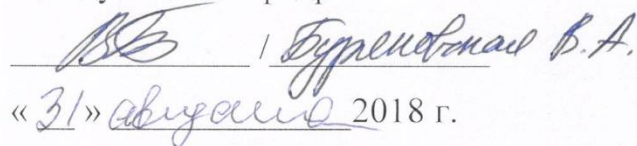 / Буреновская В.А.
«31» августа 2018 г.